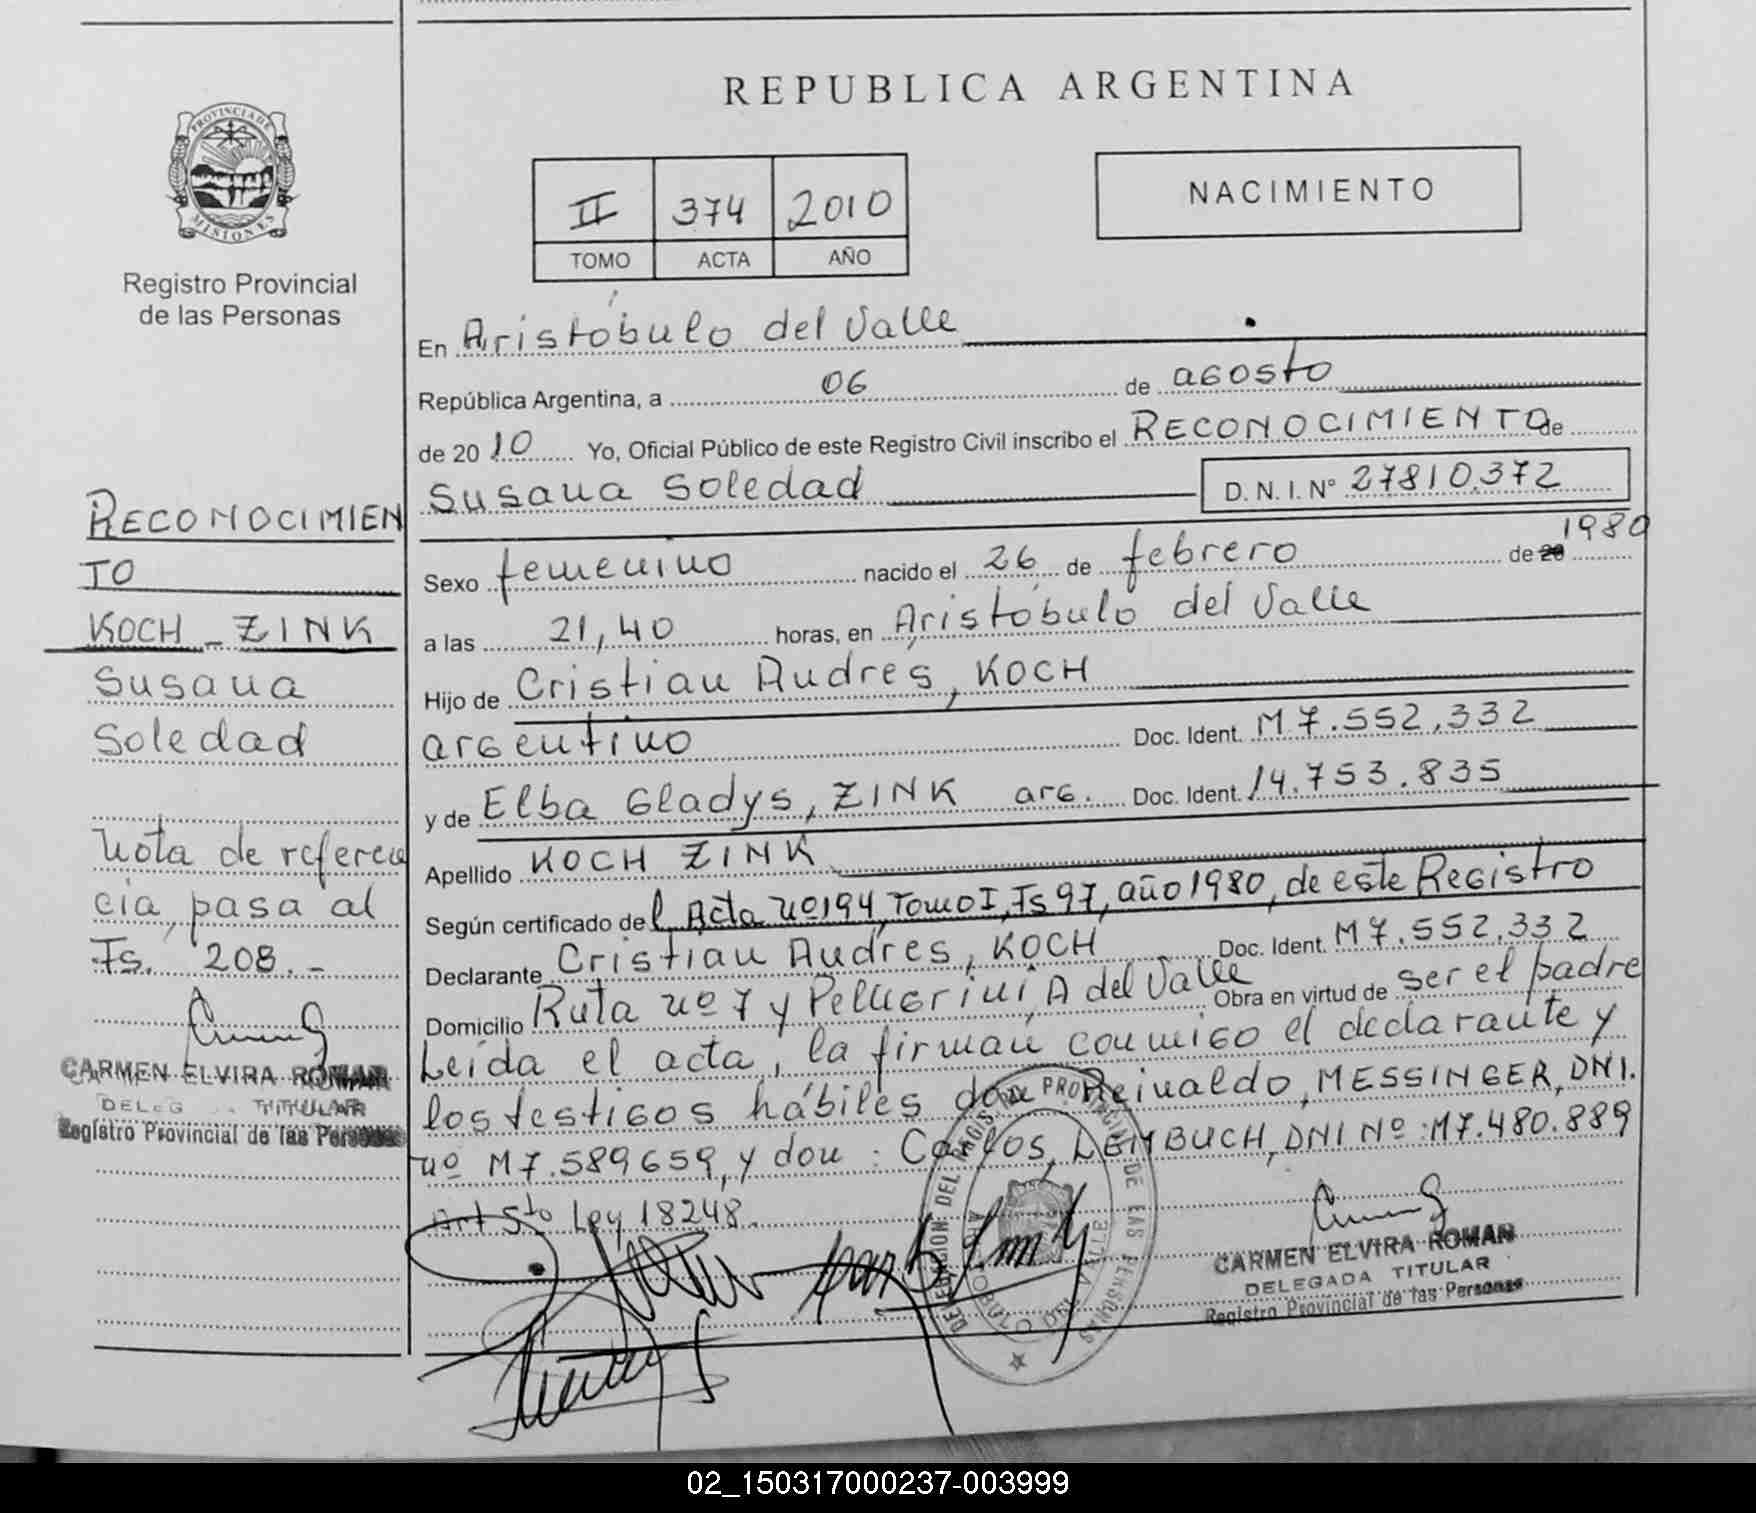 REPUBLICA ARGENTINA
PROVINCIA DE
MISIONES
Registro Provincial
de las Personas
II 374 2010
TOMO ACTA AÑO
NACIMIENTO
En Aristóbulo del Valle
República Argentina, a 06 de agosto
de 2010 Yo, Oficial Público de este Registro Civil inscribo el RECONOCIMIENTO de
Susana Soledad D.N.I. N° 27810.372
Sexo femenino nacido el 26 de febrero de 20 1980
a las 21,40 horas, en Aristóbulo del Valle
Hijo de Cristian Andrés, KOCH
argentino Doc. Ident. M7.552.332
y de Elba Gladys, ZINK arg. Doc. Ident. 14.753.835
Apellido KOCH ZINK
Según certificado del Acta nº194, Tomo I, Fs 97, año 1980, de este Registro
Declarante Cristian Andrés, KOCH Doc. Ident. M7.552.332
Domicilio Ruta nº 7 y Pellegrini, A del Valle Obra en virtud de ser el padre
Leída el acta, la firman conmigo el declarante y
los testigos hábiles don Reinaldo, MESSINGER, DNI.
nº M7.589659, y don: Carlos, LEMBUCH, DNI Nº: M7.480.889
Art 5to Ley 18248.
RECONOCIMIEN
TO
KOCH - ZINK
Susana
Soledad
Nota de referen
cia, pasa al
Fs. 208.-
CARMEN ELVIRA ROMAN
TITULAR
Registro Provincial de las Personas
DELEGACION DEL REGISTRO PROVINCIAL DE LAS PERSONAS
ARISTOBULO DEL VALLE
CARMEN ELVIRA ROMAN
DELEGADA TITULAR
Registro Provincial de las Personas
02_150317000237-003999